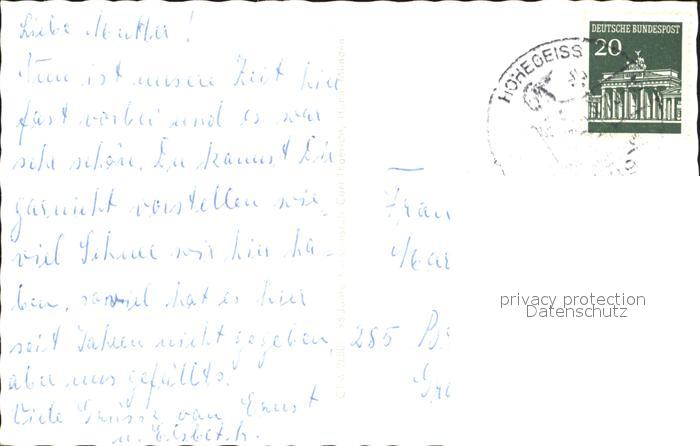 Liebe Mutter!
Nun ist unsere Zeit hier
fast vorbei und es war
sehr schön. Du kannst Dir
garnicht vorstellen wie-
viel Schnee wir hier ha-
ben, soviel hat es hier
seit Jahren nicht gegeben,
aber uns gefällts.
Viele Grüsse von Ernst
u. Elsbeth.
DEUTSCHE BUNDESPOST
20
HOHEGEISS
Frau
285
privacy protection
Datenschutz